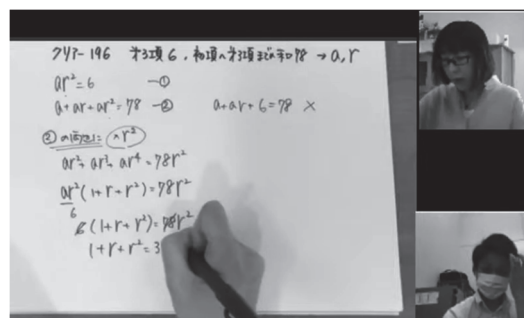 クリアー196 第3項6, 初項〜第3項までの和78 → a, r
ar²=6 —①
a+ar+ar²=78 —② a+ar+6=78 ×
②の両辺に×r²
ar²+ar³+ar⁴=78r²
ar²(1+r+r²)=78r²
6
6(1+r+r²)=78r²
1+r+r²=